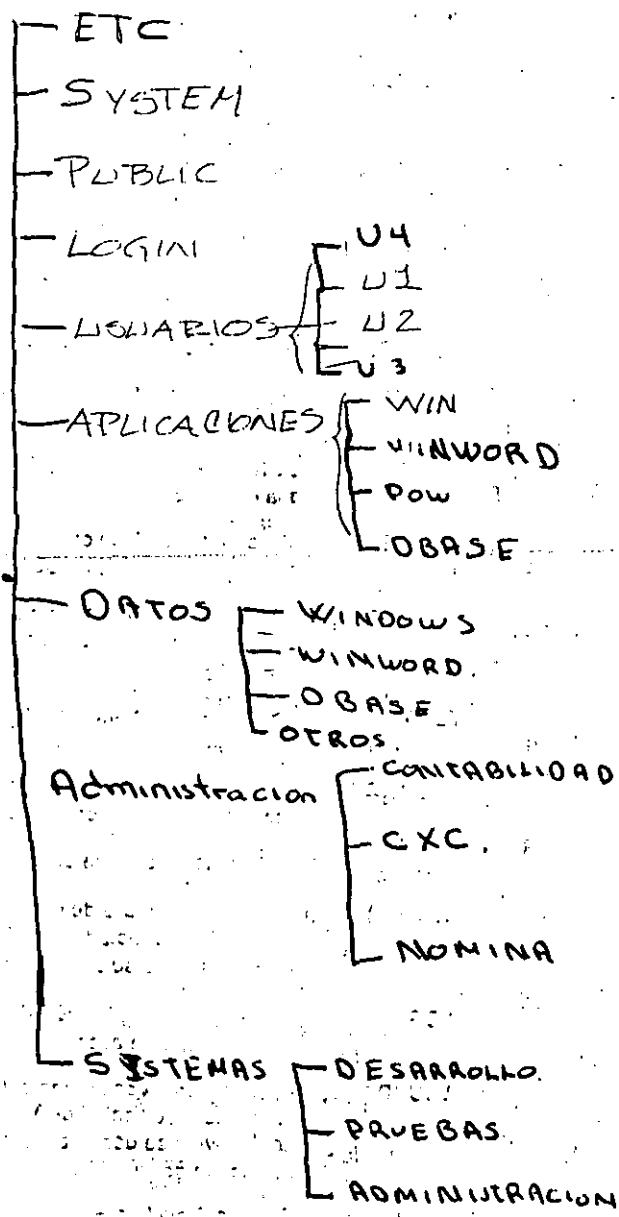 ETC
SYSTEM
PUBLIC
LOGIN
USUARIOS
U4
U1
U2
U3
APLICACIONES
WIN
WINWORD
POW
DBASE
DATOS
WINDOWS
WINWORD.
DBASE
OTROS.
Administracion
CONTABILIDAD
CXC.
NOMINA
SISTEMAS
DESARROLLO.
PRUEBAS.
ADMINISTRACION